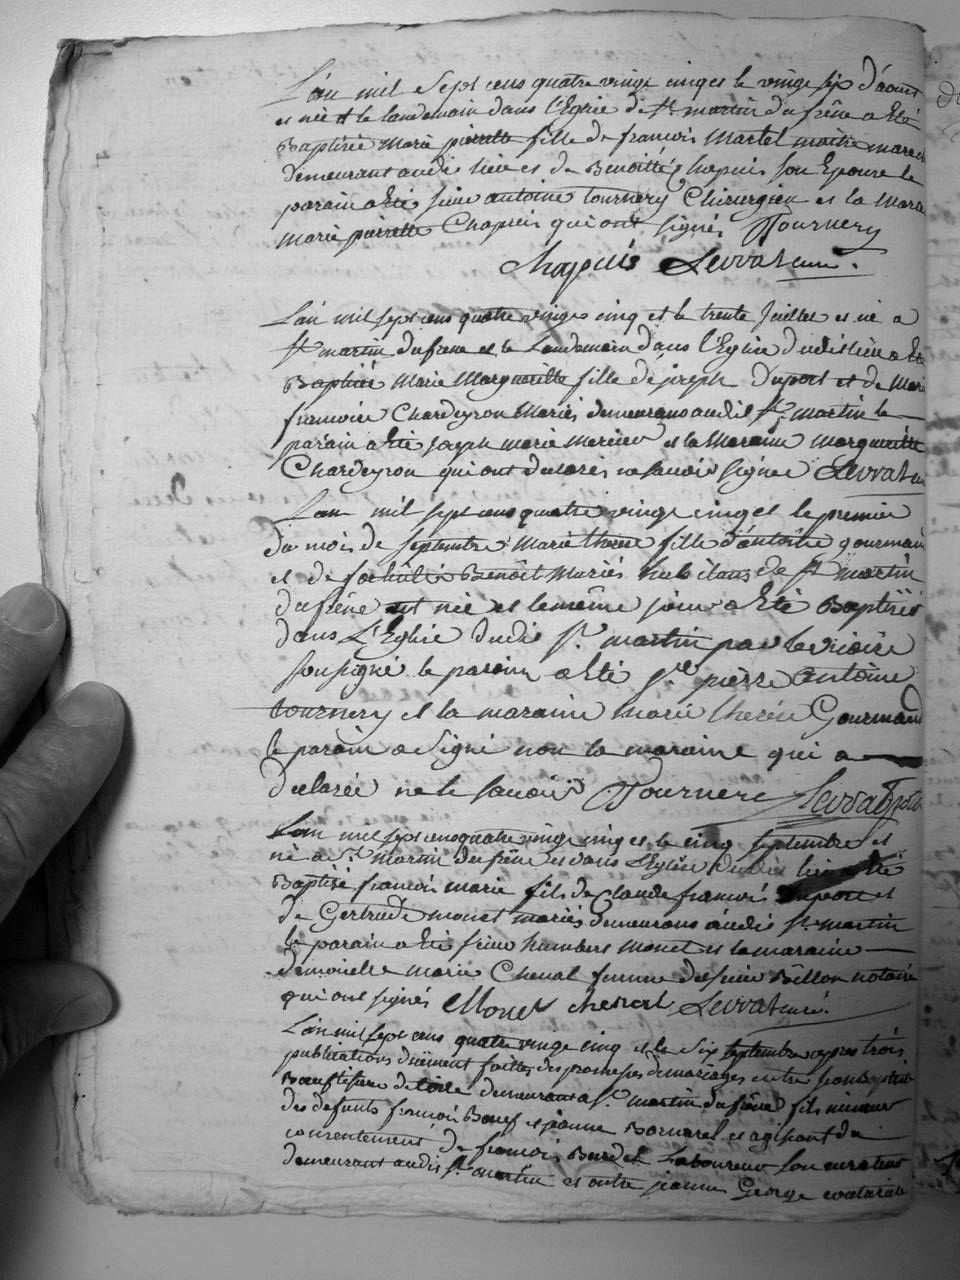 L'an mil sept cens quatre vingt cinq et le vingt six d'aoust
et née et le landemain dans l'Eglise de St martin du frêne a Eté
Baptisée Marie pierrette fille de francois Martel maitre marec
demeurant audit lieu et de Benoitte Chapuis son Epouse le
parain a Eté sieur antoine tournery Chirurgien et la Mara
marie pierrette Chapuis qui ont signés Tournery
Chapuis Levrat curé.
L'an mil sept cens quatre vingt cinq et le trente Juillet est né a
St martin du frene et le Landemain dans l'Eglise dudit lieu a Eté
Baptisée Marie Marguerite fille de joseph Duport et de Mari
francoise Chardeyron Mariés demeurans audit St. martin le
parain a Eté joseph marie mercier et la Maraine Margueritte
Chardeyron qui ont declarés ne savoir signer Levrat cu
L'an mil sept cens quatre vingt cinq et le premier
du mois de septembre Marie therese fille d'antoine gourmand
et de Benoit Mariés habitans de St martin
du frêne est née et le même jour a Eté Baptisée
dans L'Eglise dudit St. martin par le vicaire
soussigné le parain a Eté Sr pierre antoine
tournery et la maraine marie therese Gourmand
le parain a signé non la maraine qui a
declarée ne le savoir Tournery Levrat
L'an mil sept cens quatre vingt cinq et le cinq septembre est
né a St. martin du frêne et dans L'Eglise dudit lieu a Eté
Baptisé francois marie fils de Claude francois Duport et
de Gertrude monet mariés demeurans audit St. martin
le parain a Eté sieur humbert monet et la maraine
demoiselle marie Chenal femme du sieur Billon notaire
qui ont signés Monet chenal Levrat curé.
L'an mil sept cens quatre vingt cinq et le six septembre apres trois
publications duëment faittes des promesses de mariages entre jean
Boeuf tissier de toile demeurant a St. martin du frêne fils mineur
des defunts francois Boeuf et jeanne Bornarel et agissant du
consentement de francois Burdet Laboureur son curateur
demeurant audit St. martin et entre jeanne George